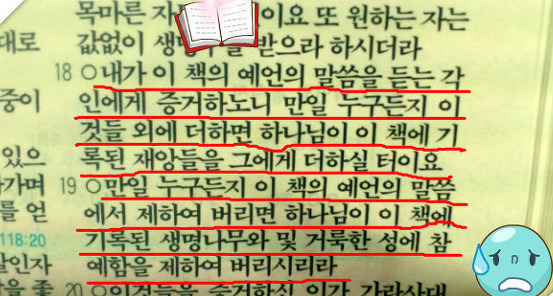 대로
중이
있으
가며
를 얻
118:20
인자
을 좇
목마른 이요 또 원하는 자는
값없이 생명 받으라 하시더라
18 ○내가 이 책의 예언의 말씀을 듣는 각
인에게 증거하노니 만일 누구든지 이
것들 외에 더하면 하나님이 이 책에 기
록된 재앙들을 그에게 더하실 터이요
19 ○만일 누구든지 이 책의 예언의 말씀
에서 제하여 버리면 하나님이 이 책에
기록된 생명나무와 및 거룩한 성에 참
예함을 제하여 버리시리라
20 ○이것들을 증거하신 이가 가라사대